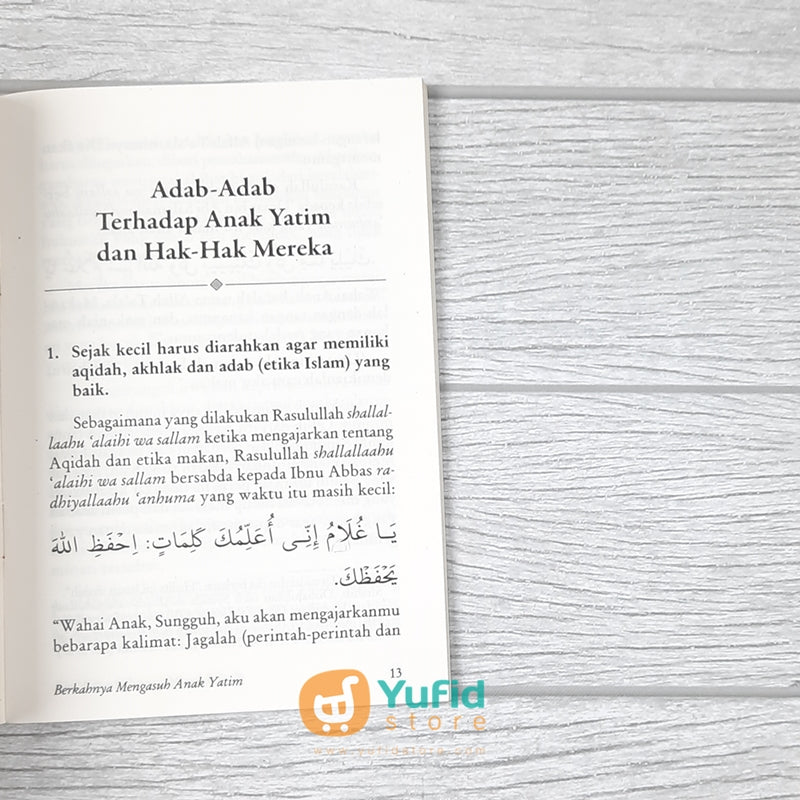 Adab-Adab
Terhadap Anak Yatim
dan Hak-Hak Mereka
1. Sejak kecil harus diarahkan agar memiliki
aqidah, akhlak dan adab (etika Islam) yang
baik.
Sebagaimana yang dilakukan Rasulullah shallal-
laahu ‘alaihi wa sallam ketika mengajarkan tentang
Aqidah dan etika makan, Rasulullah shallallaahu
‘alaihi wa sallam bersabda kepada Ibnu Abbas ra-
dhiyallaahu ‘anhuma yang waktu itu masih kecil:
يَا غُلَامُ إِنِّي أُعَلِّمُكَ كَلِمَاتٍ: اِحْفَظِ اللهَ
يَحْفَظْكَ.
“Wahai Anak, Sungguh, aku akan mengajarkanmu
bebarapa kalimat: Jagalah (perintah-perintah dan
Berkahnya Mengasuh Anak Yatim
13
Yufid
store
www.yufidstore.com